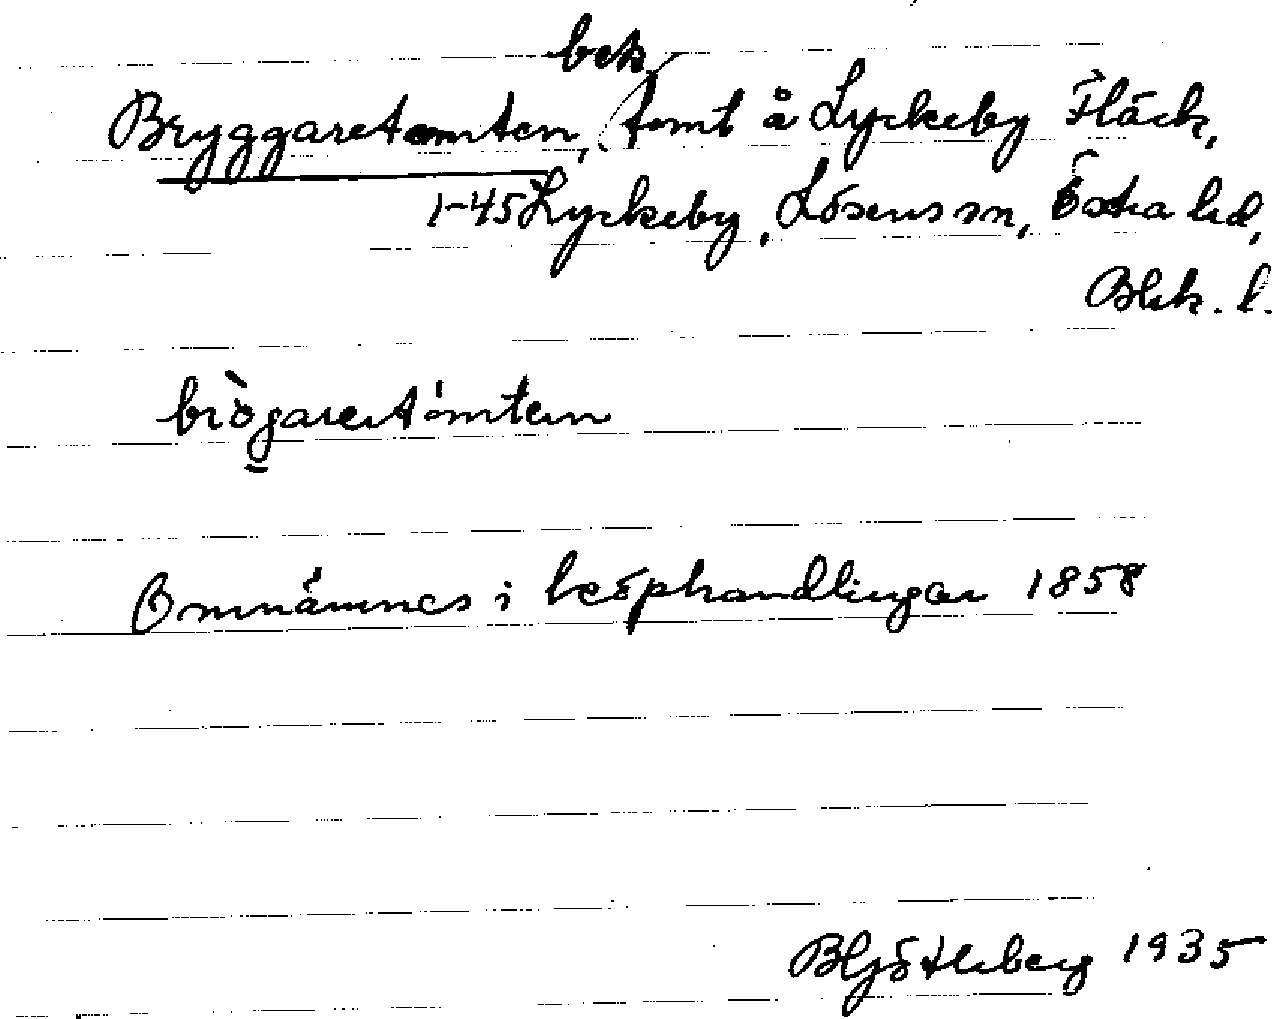 bek.
Bryggaretomten, tomt å Lyckeby Fläck,
1-45 Lyckeby, Lösens sn, Östra hd,
Blek. l.
brögaretómten
Omnämnes i köphandlingar 1858
1935